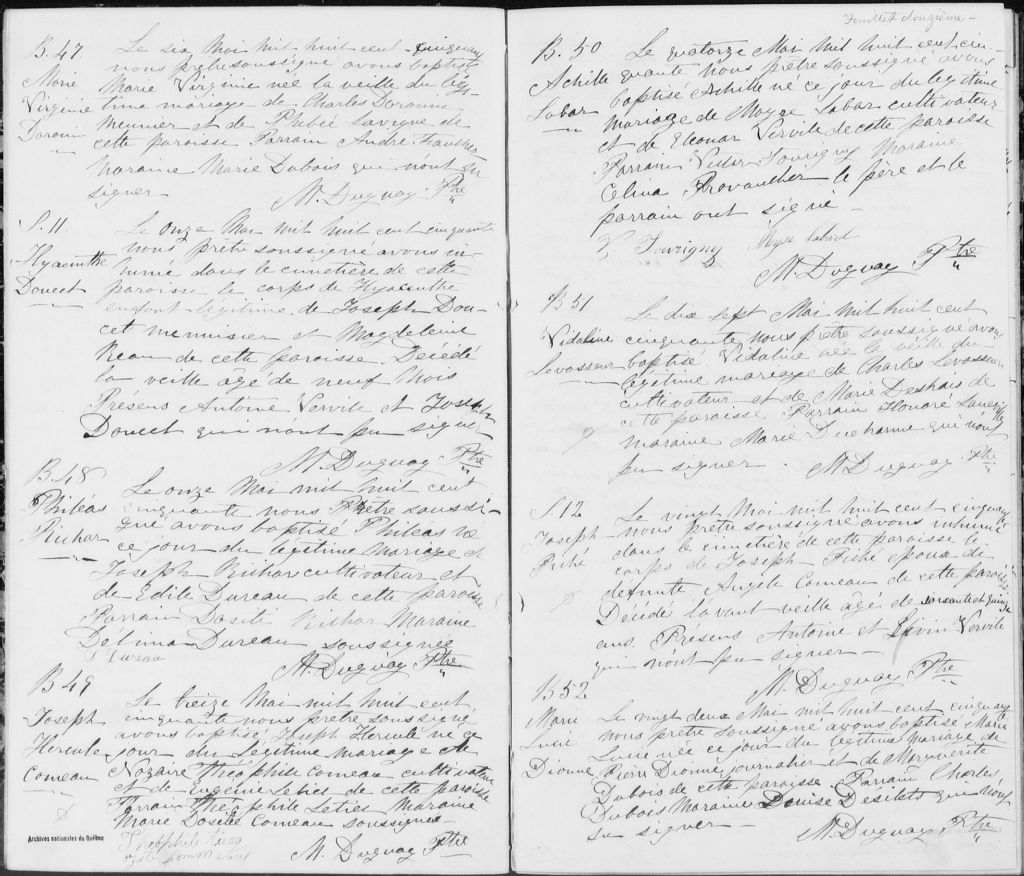 B. 47
Marie
Virginie
Le six Mai mil huit cent cinquante
nous prêtre soussigné avons baptisé
Marie Virginie née la veille du légi-
time mariage de Charles
Meunier et de Phebée Lavigne de
cette paroisse Parrain André
Maraine Marie Dubois qui n'ont su
signer
M. Duguay Ptre
S. 11
Hyacinthe
Doucet
Le onze Mai mil huit cent cinquante
nous prêtre soussigné avons in-
humé dans le cimetière de cette
paroisse le corps de Hyacinthe
enfant légitime de Joseph Dou-
cet menuisier et Magdeleine
de cette paroisse. Décédé
la veille âgé de neuf Mois
Présens Antoine Vervile et Joseph
Doucet qui n'ont pu signer
M. Duguay Ptre
B. 48
Philéas
Richar
Le onze Mai mil huit cent
cinquante nous Prêtre soussi-
gné avons baptisé Philéas né
ce jour du légitime Mariage de
Joseph Richar cultivateur et
de Edile Dureau de cette paroisse
Parrain Dosité Richar Maraine
Delima Dureau soussignée
M. Duguay Ptre
B 49
Joseph
Hercule
Comeau
Le treize Mai mil huit cent
cinquante nous prêtre soussigné
avons baptisé Joseph Herculé né ce
jour du Légitime mariage de
Nozaire Théophile Comeau cultivateur
et de Eugénie de cette paroisse
Parrain Théophile Maraine
Marie Comeau soussignés
Théophile
M. Duguay Ptre
Archives nationales du Québec
Feuillet douzième
B. 50
Achille
Labar
Le quatorze Mai mil huit cent cin-
quante Nous prêtre soussigné avons
baptisé Achille né ce jour du légitime
mariage de Moyse Labar cultivateur
et de Eleonar Vervile de cette paroisse
Parrain Tourigny Maraine
Célina Provancher le père et le
parrain ont signé
Tourigny Moyse Labard
M. Duguay Ptre
B 51
Vidaline
Levasseur
Le dix sept Mai mil huit cent
cinquante nous prêtre soussigné avons
baptisé Vidaline née la veille du
légitime mariage de Charles Levasseur
cultivateur et de Marie Deshais de
cette paroisse Parrain Honoré
maraine Marie Ducharme qui n'ont
pu signer. M. Duguay Ptre
S. 12
Joseph
Piché
Le vingt Mai mil huit cent cinquante
nous prêtre soussigné avons inhumé
dans le cimetière de cette paroisse le
corps de Joseph Piché époux de
défunte Angele Comeau de cette paroisse
Décédé l'avant veille âgé de soixante et quinze
ans. Présens Antoine et Vervile
qui n'ont pu signer
M. Duguay Ptre
B 52
Marie
Lucie
Dionne
Le vingt deux Mai mil huit cent cinquante
nous prêtre soussigné avons baptisé Marie
Lucie née ce jour du légitime mariage de
Pierre Dionne journalier et de Marguerite
Dubois de cette paroisse Parrain Charles
Dubois Maraine Louise Désilets qui n'ont
su signer
M. Duguay Ptre